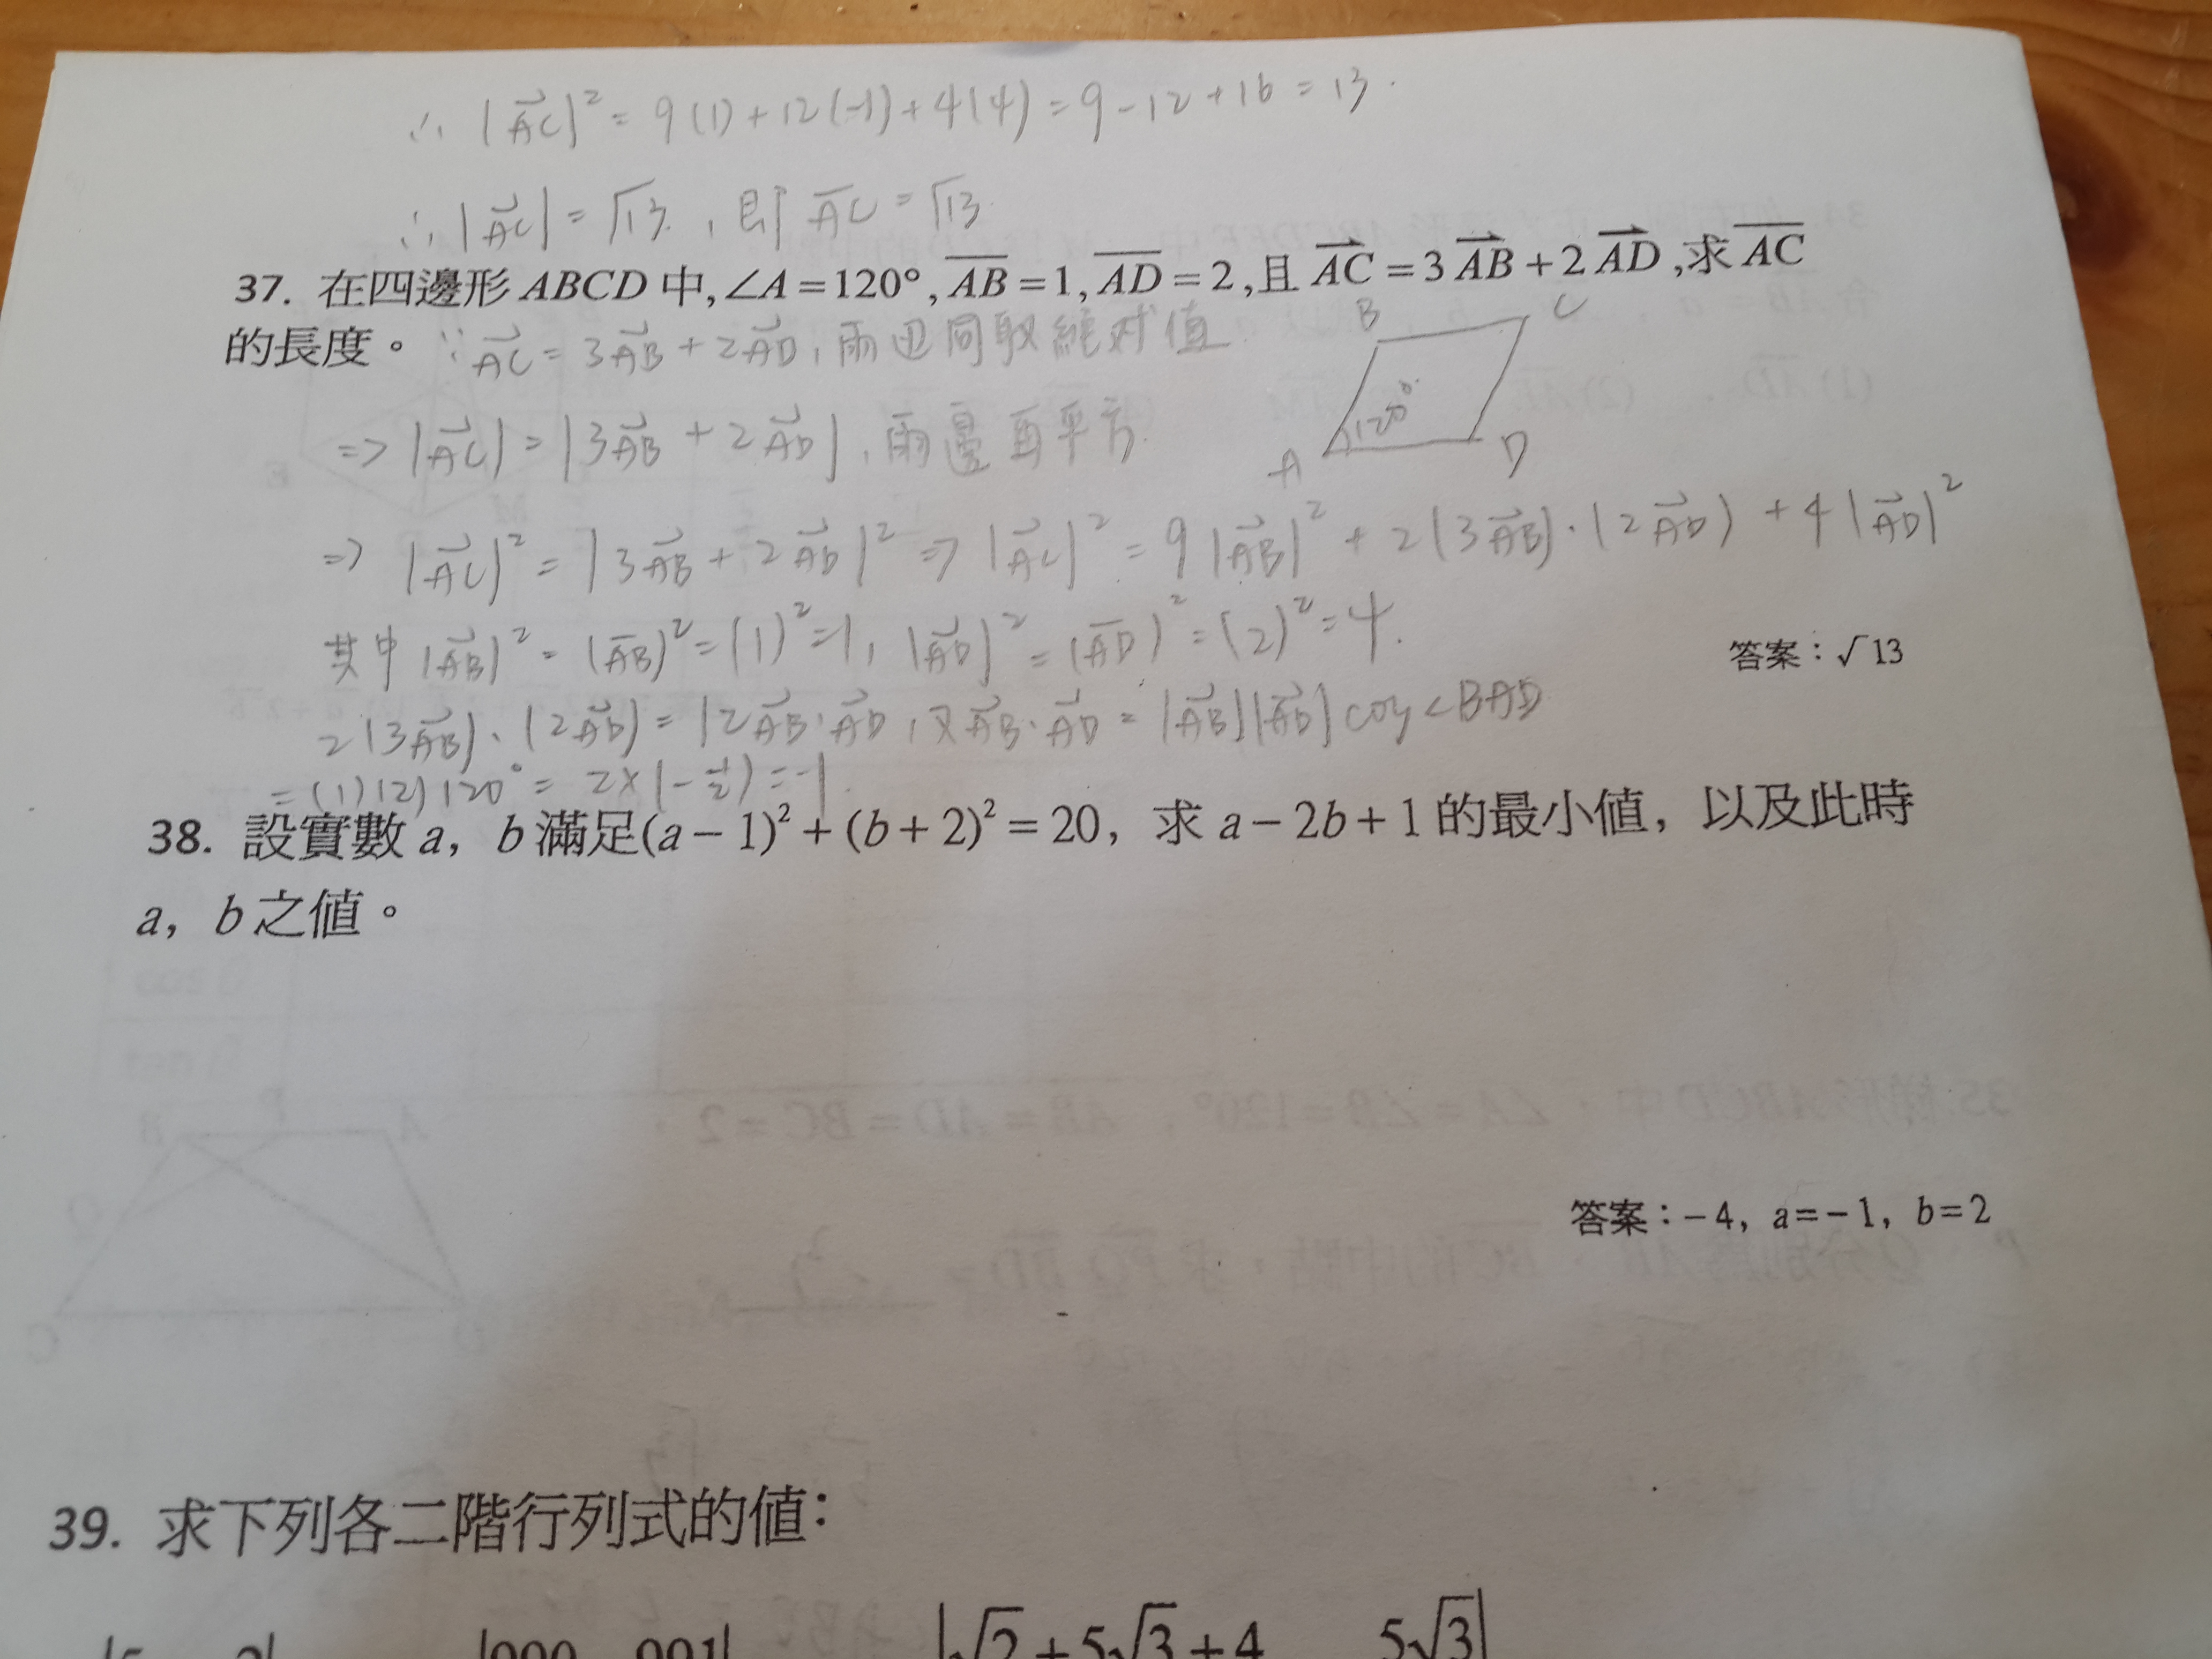 ∴ |AC⃗|² = 9(1)+12(-1)+4(4) = 9-12+16 = 13.
∴ |AC⃗| = √13, 即 A̅C̅ = √13.
37. 在四邊形 ABCD 中,∠A=120°, A̅B̅=1, A̅D̅=2,且 AC⃗=3AB⃗+2AD⃗,求 A̅C̅
的長度。 ∵ AC⃗ = 3AB⃗ + 2AD⃗, 兩边同取絕対值
B C
=> |AC⃗| = |3AB⃗ + 2AD⃗|, 兩邊再平方.
120°
A D
=> |AC⃗|² = |3AB⃗ + 2AD⃗|² => |AC⃗|² = 9|AB⃗|² + 2(3AB⃗)·(2AD⃗) + 4|AD⃗|²
其中 |AB⃗|² = (A̅B̅)² = (1)² = 1, |AD⃗|² = (A̅D̅)² = (2)² = 4.
答案：√13
2(3AB⃗)·(2AD⃗) = 12AB⃗·AD⃗, 又AB⃗·AD⃗ = |AB⃗||AD⃗| cos∠BAD
= (1)(2)120° = 2×(-1/2) = -1.
38. 設實數 a, b 滿足(a-1)²+(b+2)²=20, 求 a-2b+1 的最小值, 以及此時
a, b 之值。
答案：-4, a=-1, b=2
39. 求下列各二階行列式的值:
√2+5√3+4 5√3